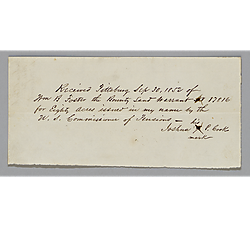 Received Pittsburg Sep 30, 1852 of
Wm H Foster the Bounty Land Warrant
for Eighty acres issued in my name by the
U. S. Commissioner of Pensions — his
Joshua X P. Cook
mark